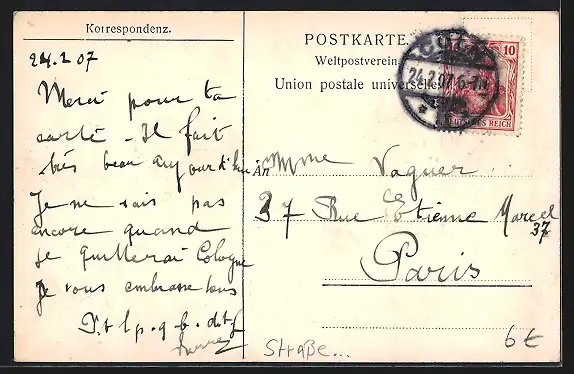 Korrespondenz.
24.2 07
Merci pour ta
carte - Il fait
très beau aujourd'hui
Je ne sais pas
encore quand
je quitterai Cologne
Je vous embrasse tous
POSTKARTE.
Weltpostverein.
Union postale universelle.
24.2.07.6-7
10
DEUTSCHES REICH
Mme Vaguer
37 Rue Etienne Marcel
37
Paris
Straße...
6€